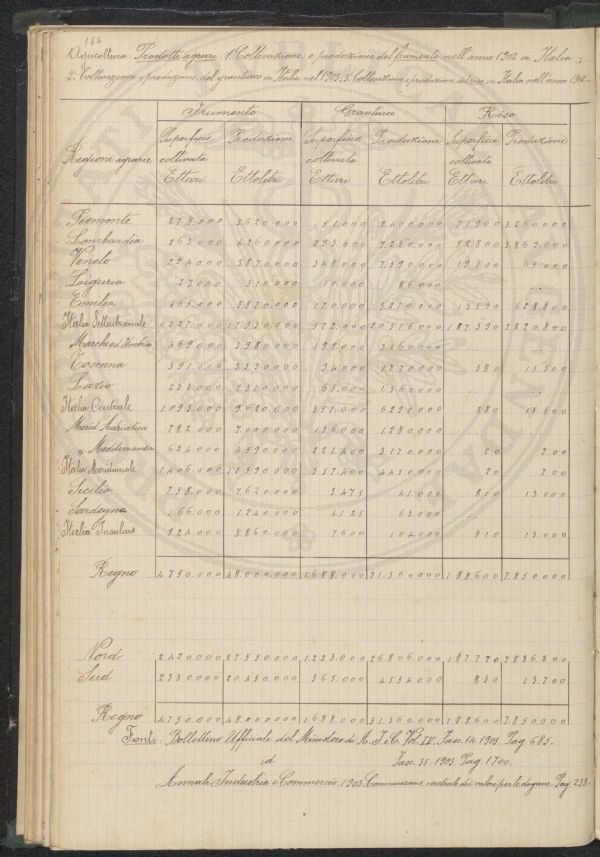 164
Agricoltura: Prodotti agrari: 1° Coltivazione e produzione del frumento nell'anno 1902 in Italia;
2° Coltivazione e produzione del granturco in Italia nel 1903; 3. Coltivazione e produzione del riso in Italia nell'anno 1902.
Frumento Granturco Riso
Regioni agrarie Superficie coltivata Ettari Produzione Ettolitri Superficie coltivata Ettari Produzione Ettolitri Superficie coltivata Ettari Produzione Ettolitri
Piemonte 278.000 3.620.000 2.400.000 71.900 3.260.000
Lombardia 263.000 4.260.000 293.000 7.230.000 82800 3.869.000
Veneto 294.000 3870.000 348.000 7.590.000 65000
Liguria 27000 310.000 10.000 86.000 ...
Emilia 465.000 5870.000 170.000 3.210.000 13.590 628.800
Italia Settentrionale 972.000 20516.000 187.390 7.820.800
Marche ed Umbria 469.000 3980.000 192.000 3.160.000
Toscana 391.000 3330.000 94.000 1.770.000 380 15.500
Lazio 233.000 2310.000 65.000 1.360.000
Italia Centrale 1.093.000 9620.000 351.000 6290.000 380 15500
Merid. Adriatica 782.000 7.000.000 136.000 1280.000
" Mediterranea 624.000 4590.000 221.400 3.170.000 20 700
Italia Meridionale 1406.000 11.590.000 357.400 4450.000 20 700
Sicilia 758.000 7.620.000 3.475 41.000 810 13.000
Sardegna 166.000 1.240.000 4125 63.000
Italia Insulare 924.000 8860.000 7600 104000 810 13.000
Regno 4750.000 48.000.000 1688.000 31.360.000 188.600 7.850.000
Nord 2420.000 27.550.000 1.223.000 26806.000 187770 7836300
Sud 2330.000 20.450.000 365.000 4.554.000 830 13.700
Regno 4.750.000 48000.000 1688.000 31.360.000 188.600 7.850.000
Fonti: Bollettino Ufficiale del Ministero di A. I. e C. Vol. IV. Fasc. 14. 1903. Pag 685.
id Fasc. 35. 1903. Pag. 1700.
Annali Industria e Commercio 1903. Commissione centrale dei valori per le dogane Pag. 238.